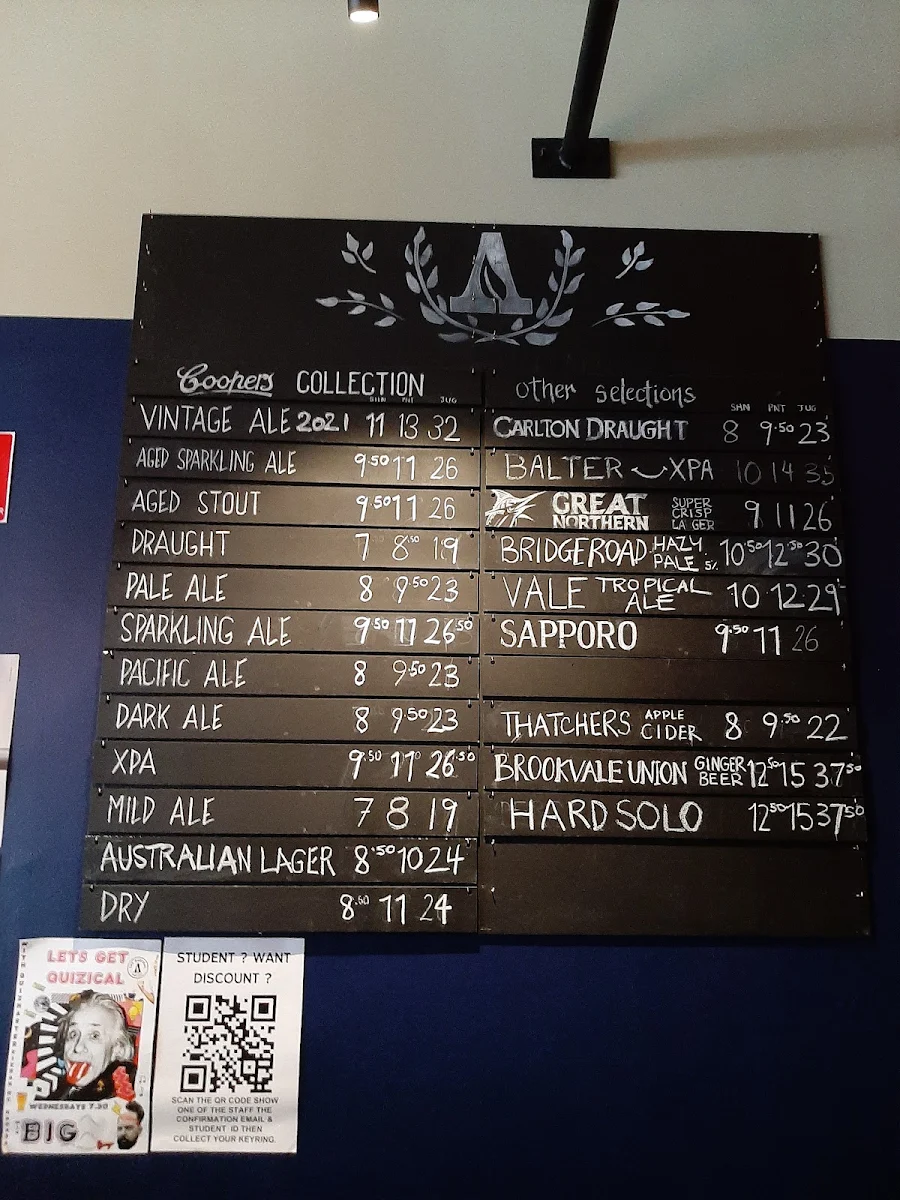 Coopers COLLECTION
SHN PNT JUG
VINTAGE ALE 2021 11 13 32
AGED SPARKLING ALE 9.50 11 26
AGED STOUT 9.50 11 26
DRAUGHT 7 8.50 19
PALE ALE 8 9.50 23
SPARKLING ALE 9.50 11 26.50
PACIFIC ALE 8 9.50 23
DARK ALE 8 9.50 23
XPA 9.50 11 26.50
MILD ALE 7 8 19
AUSTRALIAN LAGER 8.50 10 24
DRY 8.60 11 24
other selections
SHN PNT JUG
CARLTON DRAUGHT 8 9.50 23
BALTER XPA 10 14 35
GREAT NORTHERN SUPER CRISP LAGER 9 11 26
BRIDGEROAD HAZY PALE 5% 10.50 12.50 30
VALE TROPICAL ALE 10 12 29
SAPPORO 9.50 11 26
THATCHERS APPLE CIDER 8 9.50 22
BROOKVALE UNION GINGER BEER 12.50 15 37.50
HARD SOLO 12.50 15 37.50
LETS GET
QUIZICAL
WEDNESDAYS 7.30
BIG
STUDENT ? WANT
DISCOUNT ?
SCAN THE QR CODE SHOW
ONE OF THE STAFF THE
CONFIRMATION EMAIL &
STUDENT ID THEN
COLLECT YOUR KEYRING.